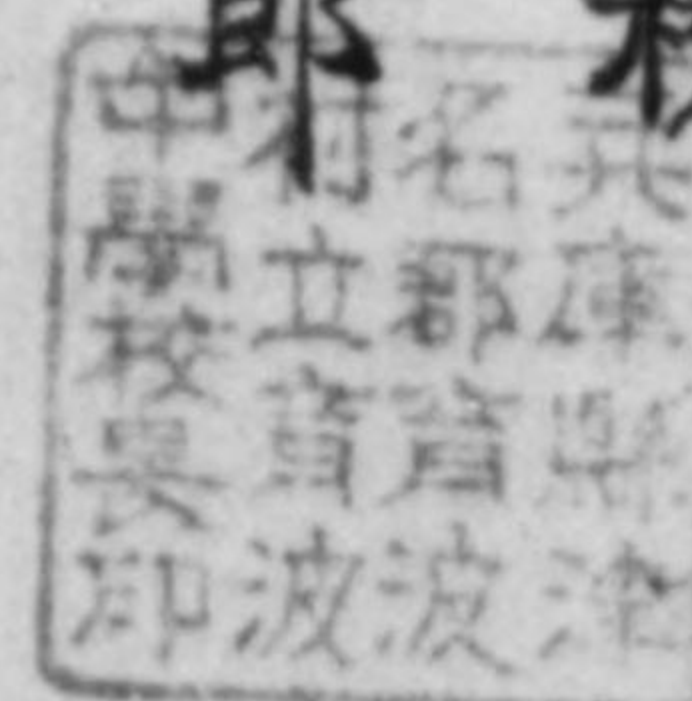 兵庫縣津
名郡育波
村立育波
中學校長印
郎